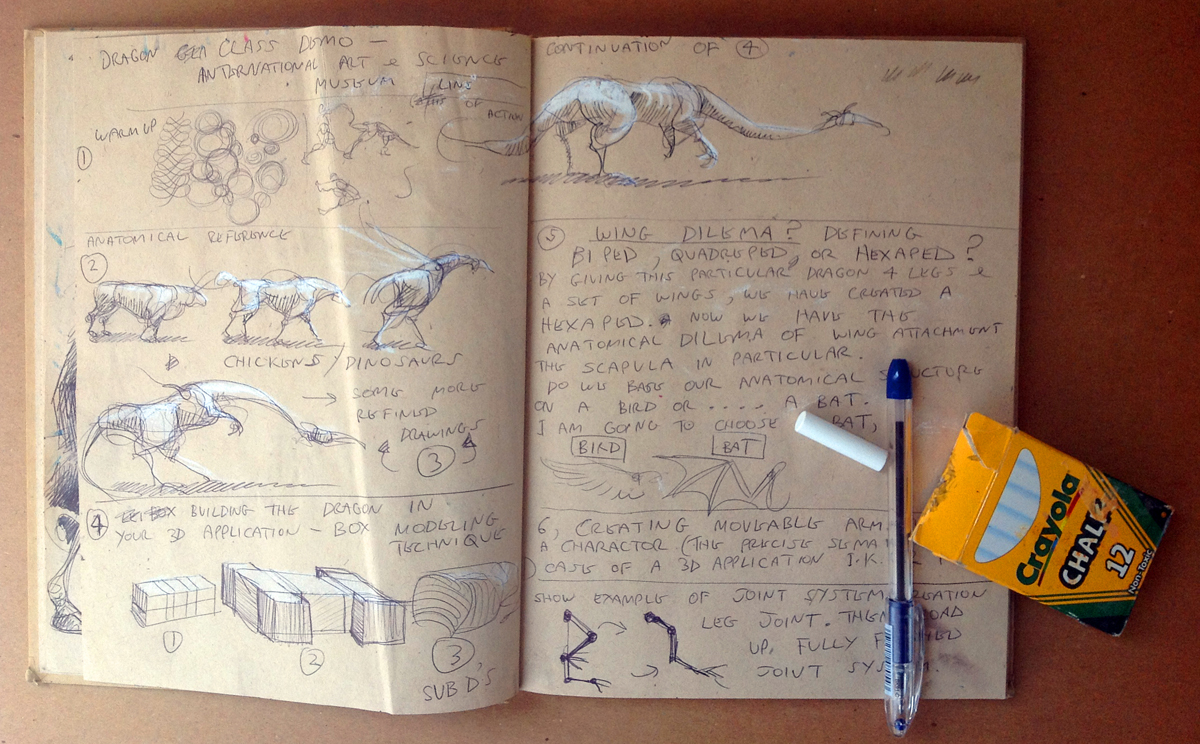 DRAGON CLASS DEMO —
ANTERNATIONAL ART & SCIENCE
MUSEUM
LINE
OF
ACTION
WARM UP
1
ANATOMICAL REFERENCE
2
CHICKENS / DINOSAURS
→ SOME MORE
REFINED
DRAWINGS
3
4 BUILDING THE DRAGON IN
YOUR 3D APPLICATION — BOX MODELING
TECHNIQUE
1
2
3
SUB D'S
CONTINUATION OF 4
5 WING DILEMA? DEFINING
BIPED, QUADREPED, OR HEXAPED?
BY GIVING THIS PARTICULAR DRAGON 4 LEGS &
A SET OF WINGS, WE HAVE CREATED A
HEXAPED. NOW WE HAVE THE
ANATOMICAL DILEMA OF WING ATTACHMENT
THE SCAPULA IN PARTICULAR.
DO WE BASE OUR ANATOMICAL STRUCTURE
ON A BIRD OR .... A BAT.
I AM GOING TO CHOOSE BAT,
BIRD BAT
6, CREATING MOVEABLE ARM
A CHARACTOR. (THE PRECISE
CASE OF A 3D APPLICATION I.K.
SHOW EXAMPLE OF JOINT SYSTEM CREATION
LEG JOINT. THEN LOAD
UP, FULLY
JOINT SYSTEM.
Crayola
CHALK
12
Non-Toxic